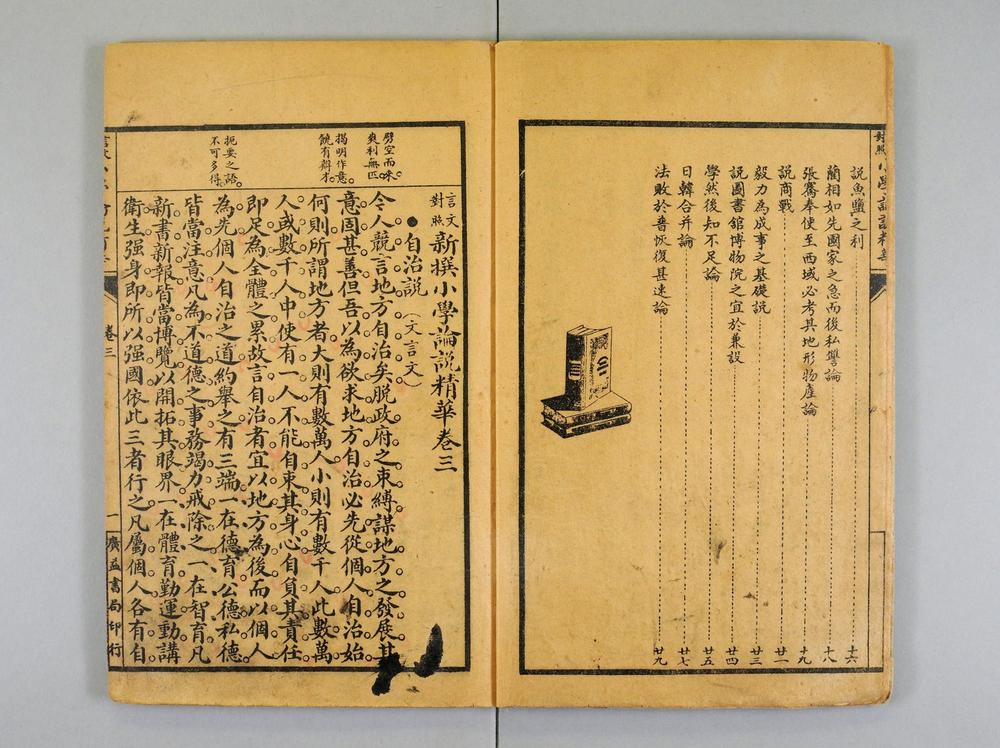 說魚鹽之利 十六
藺相如先國家之急而後私讐論 十八
張騫奉使至西域必考其地形物產論 十九
說商戰 廿一
毅力為成事之基礎說 廿三
說圖書館博物院之宜於兼設 廿四
學然後知不足論 廿五
日韓合并論 廿七
法敗於普恢復甚速論 廿九
劈空而來
爽利無匹
揭明作意
饒有辯才
扼要之語
不可多得
言文
對照
新撰小學論說精華卷三
●自治說(文言文)
今人競言地方自治矣。脫政府之束縛。謀地方之發展。其
意固甚善。但吾以為欲求地方自治。必先從個人自治始。
何則。所謂地方者。大則有數萬人。小則有數千人。此數萬
人或數千人中。使有一人不能自束其身心。自負其責任。
即足為全體之累。故言自治者。宜以地方為後。而以個人
為先。個人自治之道。約舉之有三端。一在德育。公德私德。
皆當注意。凡為不道德之事。務竭力戒除之。一在智育。凡
新書新報。皆當博覽。以開拓其眼界。一在體育。勤運動。講
衛生。強身即所以强國。依此三者行之。凡屬個人。各有自
卷三
一
廣益書局印行